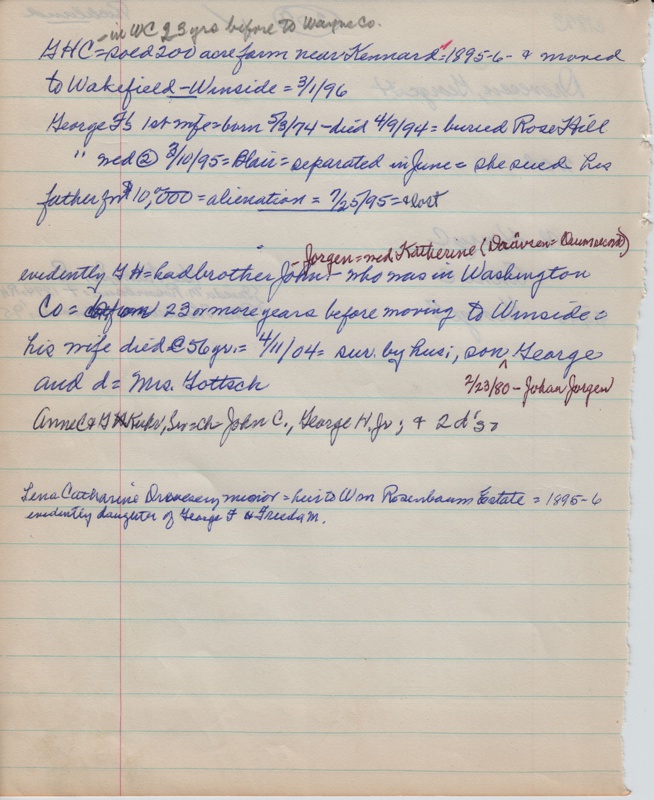 - in WC 23 yrs before to Wayne Co.
GHC = sold 200 acre farm near Kennard = 1895-6 - & moved
to Wakefield - Winside = 3/1/96
George F's 1st wife = born 5/3/74 - died 4/9/94 = buried Rose Hill
" wed ② 3/10/95 = Blair = separated in June = she sued his
father for $10,000 = alienation = 7/25/95 = & lost
- Jorgen = wed Katherine (
evidently GH = had brother John - who was in Washington
Co = 23 or more years before moving to Winside =
his wife died @ 56 yr. = 4/11/04 = sur. by hus; son George
and d = Mrs. Gottsch
2/23/80 - Johan Jorgen
Anne C & GH Kuhr, Sr = ch = John C., George H. Jr; & 2 d's =
Lena Catharine minor = heir to Wm Rosenbaum Estate = 1895-6
evidently daughter of George F & Freeda M.